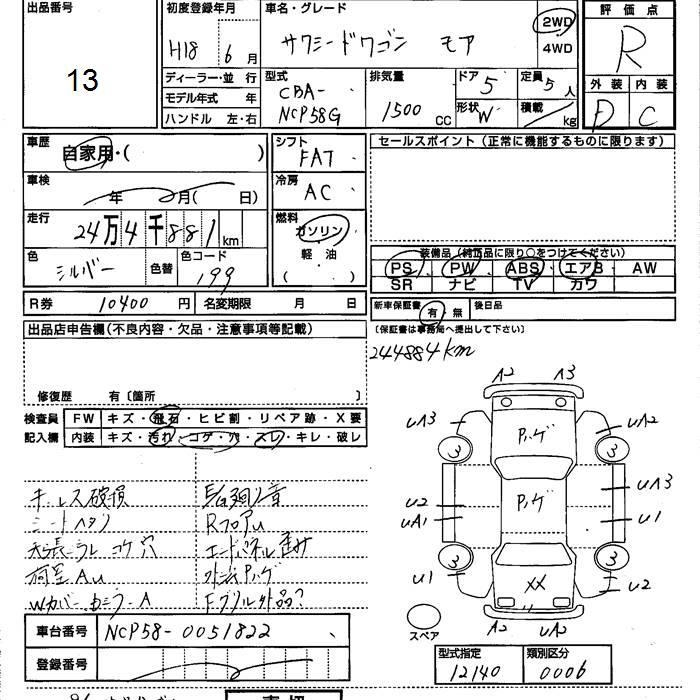 出品番号
13
初度登録年月
H18 6月
車名・グレード
サクシードワゴン
2WD
4WD
評価点
R
外装 内装
D C
ディーラー・並行
モデル年式 年
ハンドル 左・右
型式
CBA-
NCP58G
排気量
1500 CC
ドア 5
形状 W
定員 5人
積載 kg
車歴
自家用・( )
車検
年 月( 日)
走行
24万4千881km
色
シルバー
色替
色コード
199
シフト
FAT
冷房
AC
燃料
ガソリン
軽油
( )
セールスポイント(正常に機能するものに限ります)
装備品(純正品に限り○をつけてください)
PS PW ABS エアB AW
SR ナビ TV カワ
R券 10400円 名変期限 月 日
新車保証書 有・無 後日品
(保証書は事務局へ提出して下さい)
出品店申告欄(不良内容・欠品・注意事項等記載)
244884km
修復歴 有〔箇所 〕
検査員
記入欄
FW キズ・飛石・ヒビ割・リペア跡・X要
内装 キズ・汚れ・コゲ・穴・スレ・キレ・破レ
キーレス破損
シートヘタリ
コゲ穴
RフロアU
エンドパネル歪み
A2 A3
UA3 UA2
3 3
U2
UA1
UA3
U1
3 3
U1 U2
XX
A2 UA2
スペア
車台番号 NCP58-0051822
登録番号
型式指定 類別区分
12140 0006